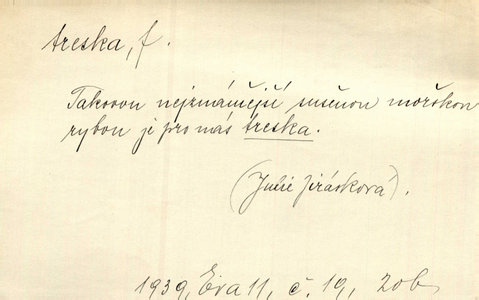 treska, f.
Takovou nejznámější sušenou mořskou
rybou je pro nás treska.
(Julie Jirásková).
1939, Eva 11, č. 19, 20b.